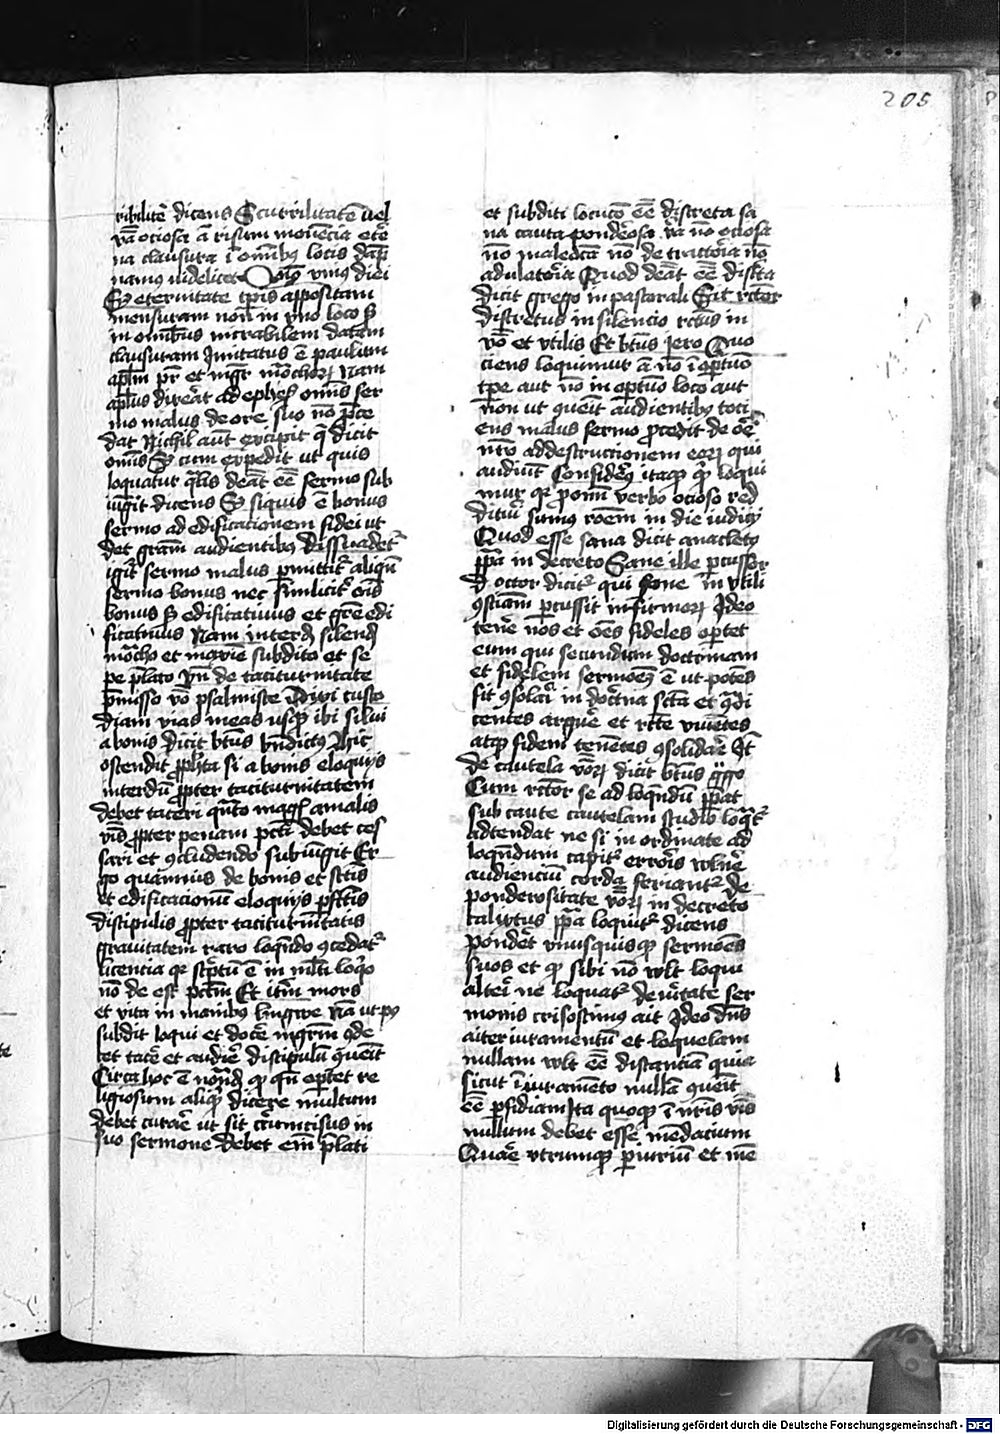 205
ribilit̄ dicens Scurrilitatē vel
v̄ba ociosa ⁊ risum mouēcia et̄ēr
na clausura ī om̄ibꝰ locis dāp
namus videlicet
Sꝫ eternitate tp̄is appōsitam
mensuram non in vno loco sꝫ
in om̄ibus mirabilem datem
clausuram Imitatus ē paulum
apl̄m pr̄ et mḡr mōchorꝝ Nam
apl̄us dixerat ad ephes̄ om̄is ser
mo malus de ore suo nō ꝓce
dat Nichil aūt excipit q̄ dicit
om̄is Sꝫ cum expedit ut quis
loquatur q̄lis debeat ēē sermo sub
iūgit dicens Sꝫ siquis ē bonus
sermo ad edificacionem fidei ut
det grām audientibꝰ Dissuadet᷑
igit᷑ sermo malus ꝑmittit᷑ aliqn̄
sermo bonus nec similit᷑ om̄is
bonus sꝫ edificatiuus et grē edi
ficatiuus Nam interdū silendū
mōcho et maxīe subdito et se
pe p̄lato Vn̄ de taciturnitate
p̄misso v̄o psalmiste Dixi custo
diam vias meas usqꝫ ibi silui
a bonis dicit bt̄us bn̄dictꝰ Hic
ostendit ꝓph̄ta si a bonis eloquijs
interdū ꝓpter taciturnitatem
debet taceri quāto magis a malis
v̄bis ꝓpter penam pctī debet ces
sari et ꝯcludendo subiūgit Er
go quamuis de bonis et sctīs
et edificacionū eloquijs ꝑfctīs
discipulis ꝓpter taciturnitatis
grauitatem raro loquēdo ꝯcedat᷑
licentia qꝛ scptū ē in ml̄ti loqo
nō de est pctm̄ Et itm̄ mors
et vita in manibus lingwe Nā
subdit loqui et docē mgrm̄ ꝯde
cet tacē et audiē discipulū ꝯuēit
Circa hoc ē notād qꝫ qn̄ oportet re
ligiosum aliqd̄ dicere multum
debet curare ut sit circūcisus in
suo sermone Debet em̄ p̄lati
et subditi locuco ēē discreta sa
na cauta ponderosa v̄a nō ociosa
nō maledica nō detractoria nō
adulatoria Quod debeat ēē discreta
dicit grego in pastorali Sit rector
discretus in silencio rectus in
v̄bo et vtilis Et bt̄us Jero Quo
ciens loquimur aut nō ī optuo
tpe aut nō in optuo loco aut
non ut ꝯuēit audientibꝰ toci
ens malus sermo ꝓcedit de ore
nr̄o ad destructionem eorꝝ qui
audiūt Consideremꝰ itaqꝫ qd̄ loqui
mur qꝛ pro omī verbo ocioso red
dituri sumus rōem in die iudicij
Quod esse sana dicit anacletꝰ
ppa in decreto Sane ille ꝑcussor
Doctor dicit᷑ qui sone in vtili
ꝯsciam ꝑcussit infirmorꝝ Ideo
tenē nos et oēs fideles oportet
eum qui secundum doctrinam
et fidelem sermoneꝫ ē ut potēs
sit ꝯsolari in doctrīa scta et ꝯtdi
centes arguē et recte viuētes
atqꝫ fidem tenētes ꝯsolidare
De cautela v̄borꝝ dicit bt̄us g̈go
Cum rector se ad loquēdū p̄pat
sub caute cautelam studio loquit᷑
adtendat ne si in ordinate ad
loquēdum capit᷑ erroris vulnē
audiencium corda feriant᷑ De
ponderositate v̄borꝝ in decreto
calixtus ppa loquit᷑ dicens
ponderet vnusquisqꝫ sermōes
suos et qꝫ sibi nō vult loqui
alteri ne loquat᷑ De v̄itate ser
monis crisostimus ait Ideo dn̄s
aiter iuramentū et loquelam
nullam vult ēē distanciā quia
sicut ī iuramēto nullā ꝯuēit
ēē ꝑfidiam Ita quoqꝫ ī nr̄is v̄bis
nullum debet esse mēdacium
Quare vtrumqꝫ ꝑiuriū et mē
Digitalisierung gefördert durch die Deutsche Forschungsgemeinschaft - DFG